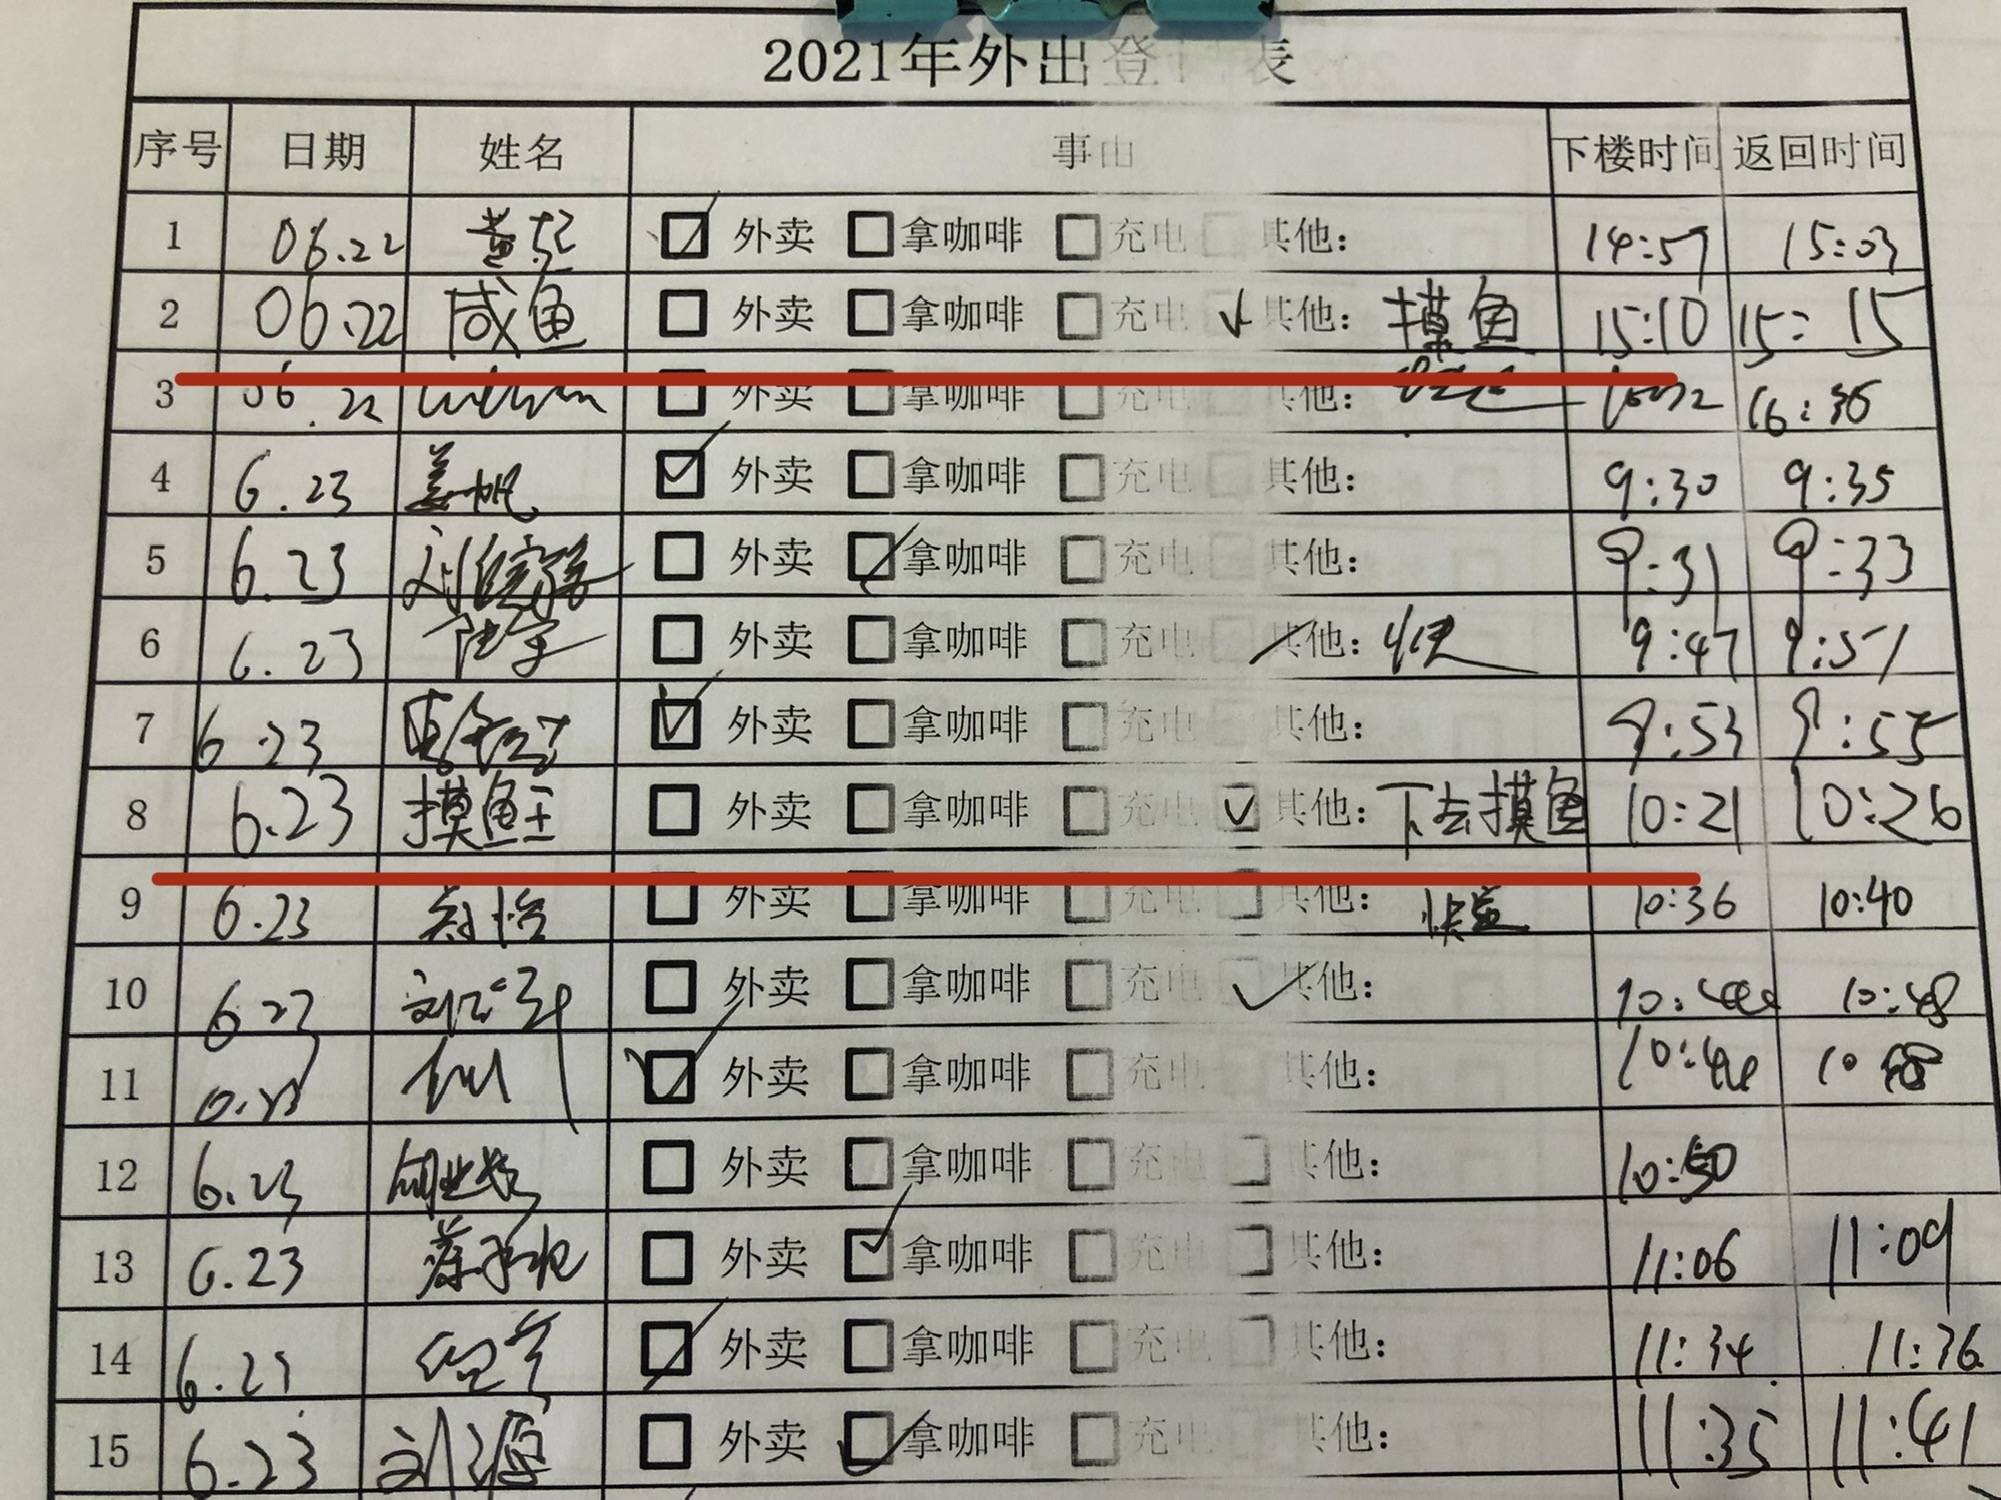 2021年外出登 表
序号 日期 姓名 事由 下楼时间 返回时间
1 06.22 董 ☑ 外卖 □ 拿咖啡 □ 充电 □ 其他： 14:57 15:03
2 06.22 咸鱼 □ 外卖 □ 拿咖啡 □ 充电 ✓ 其他： 摸鱼 15:10 15:15
3 06.22 □ 外卖 □ 拿咖啡 □ 充电 □ 其他： 16:36
4 6.23 姜帆 ☑ 外卖 □ 拿咖啡 □ 充电 □ 其他： 9:30 9:35
5 6.23 刘 □ 外卖 ☑ 拿咖啡 □ 充电 □ 其他： 9:31 9:33
6 6.23 □ 外卖 □ 拿咖啡 □ 充电 ☑ 其他： 快 9:47 9:51
7 6.23 ☑ 外卖 □ 拿咖啡 □ 充电 □ 其他： 9:53 9:55
8 6.23 摸鱼王 □ 外卖 □ 拿咖啡 □ 充电 ☑ 其他： 下去摸鱼 10:21 10:26
9 6.23 □ 外卖 □ 拿咖啡 □ 充电 □ 其他： 10:36 10:40
10 6.23 刘 □ 外卖 □ 拿咖啡 □ 充电 ☑ 其他： 10:44 10:48
11 ☑ 外卖 □ 拿咖啡 □ 充电 其他： 10:44 10
12 6.23 □ 外卖 □ 拿咖啡 □ 充电 □ 其他： 10:50
13 6.23 □ 外卖 ☑ 拿咖啡 □ 充电 □ 其他： 11:06 11:09
14 6.23 ☑ 外卖 □ 拿咖啡 □ 充电 □ 其他： 11:34 11:36
15 6.23 刘源 □ 外卖 ☑ 拿咖啡 □ 充电 其他： 11:35 11:41